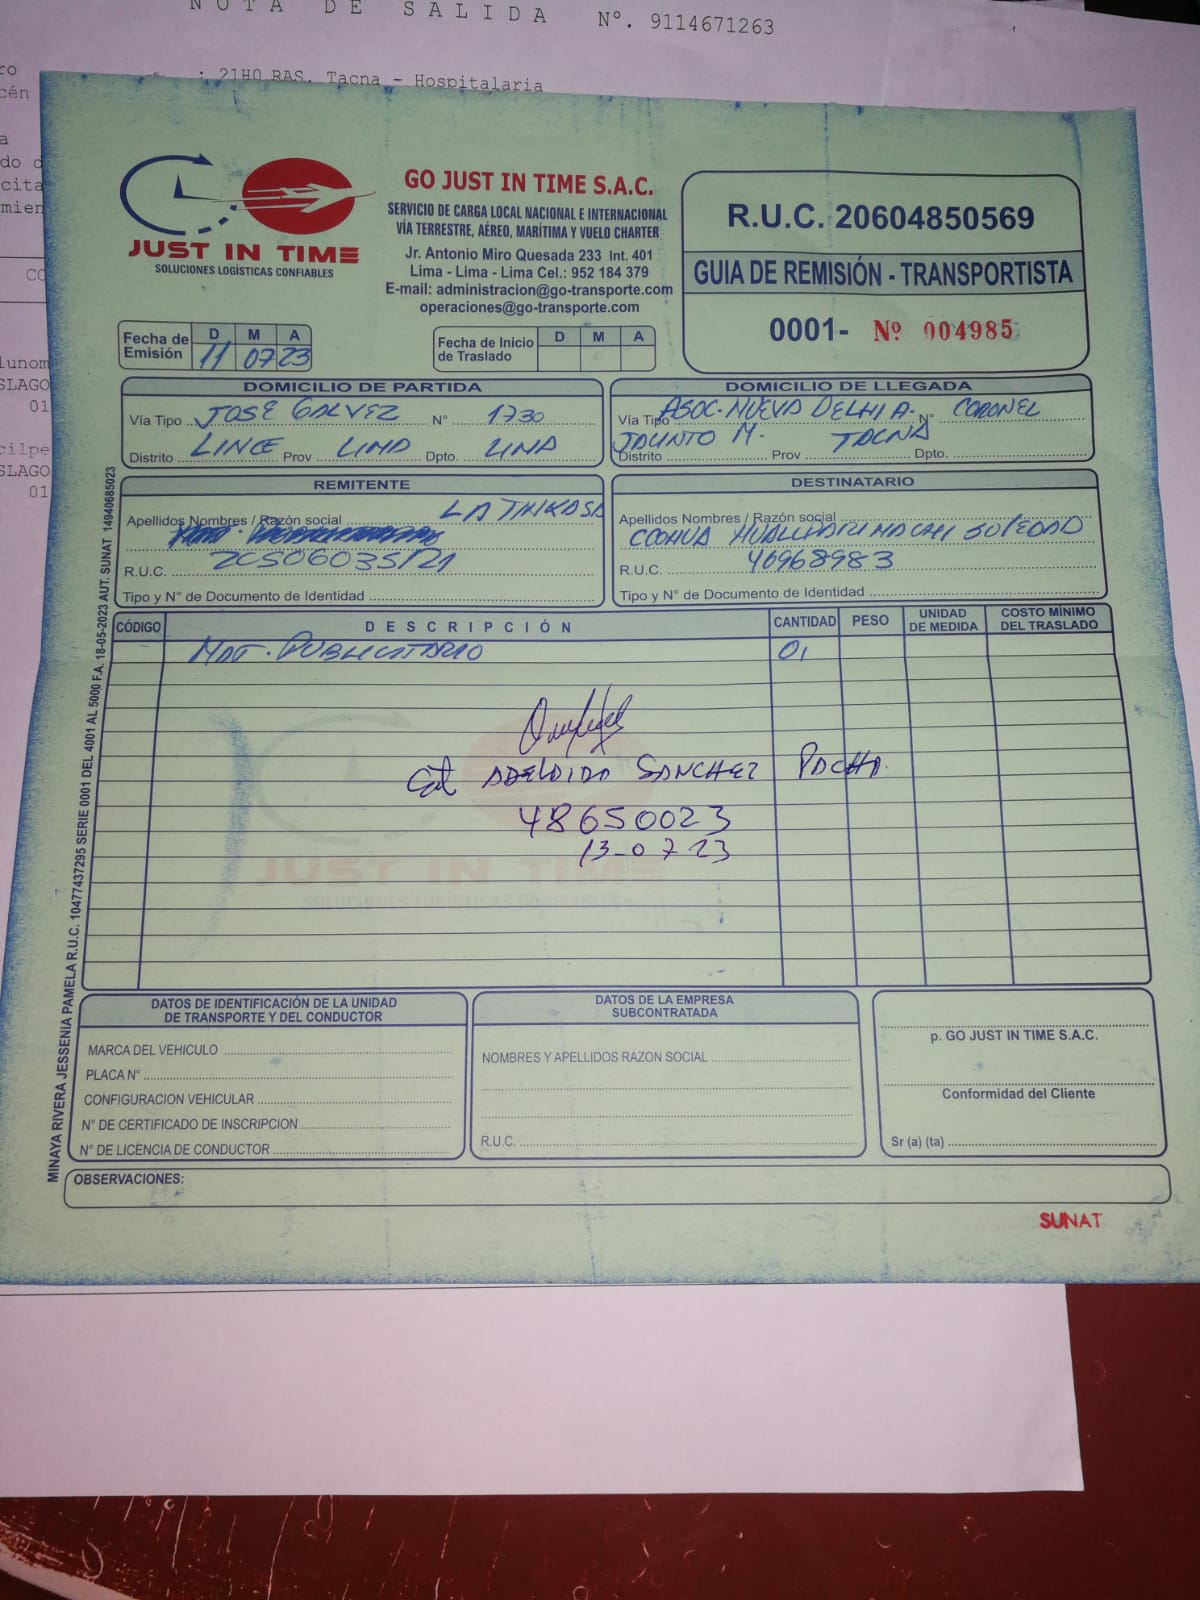 NOTA DE SALIDA Nº. 9114671263
: 21H0 RAS. Tacna - Hospitalaria
JUST IN TIME
SOLUCIONES LOGÍSTICAS CONFIABLES
GO JUST IN TIME S.A.C.
SERVICIO DE CARGA LOCAL NACIONAL E INTERNACIONAL
VÍA TERRESTRE, AÉREO, MARÍTIMA Y VUELO CHARTER
Jr. Antonio Miro Quesada 233 Int. 401
Lima - Lima - Lima Cel.: 952 184 379
E-mail: administracion@go-transporte.com
operaciones@go-transporte.com
R.U.C. 20604850569
GUIA DE REMISIÓN - TRANSPORTISTA
0001- Nº 004985
Fecha de Emisión D M A
11 07 23
Fecha de Inicio de Traslado D M A
DOMICILIO DE PARTIDA
Vía Tipo JOSE GALVEZ N° 1730
Distrito LINCE Prov LIMA Dpto. LIMA
DOMICILIO DE LLEGADA
Vía Tipo ASOC. NUEVA DELHI A. N° CORONEL
JACINTO M. TACNA
Distrito Prov Dpto.
REMITENTE
Apellidos Nombres / Razón social LATINKASA
R.U.C. 20506035121
Tipo y N° de Documento de Identidad
DESTINATARIO
Apellidos Nombres / Razón social
SOLEDAD
R.U.C. 40968983
Tipo y N° de Documento de Identidad
CÓDIGO DESCRIPCIÓN CANTIDAD PESO UNIDAD DE MEDIDA COSTO MÍNIMO DEL TRASLADO
MAT. PUBLICITARIO 01
ADELAIDA SANCHEZ PACHA
48650023
13-07 23
JUST IN TIME
SOLUCIONES LOGÍSTICAS CONFIABLES
MINAYA RIVERA JESSENIA PAMELA R.U.C. 10477437295 SERIE 0001 DEL 4001 AL 5000 F.A. 18-05-2023 AUT. SUNAT 14940685023
DATOS DE IDENTIFICACIÓN DE LA UNIDAD
DE TRANSPORTE Y DEL CONDUCTOR
MARCA DEL VEHICULO
PLACA N°
CONFIGURACION VEHICULAR
N° DE CERTIFICADO DE INSCRIPCION
N° DE LICENCIA DE CONDUCTOR
DATOS DE LA EMPRESA
SUBCONTRATADA
NOMBRES Y APELLIDOS RAZON SOCIAL
R.U.C.
p. GO JUST IN TIME S.A.C.
Conformidad del Cliente
Sr (a) (ta)
OBSERVACIONES:
SUNAT